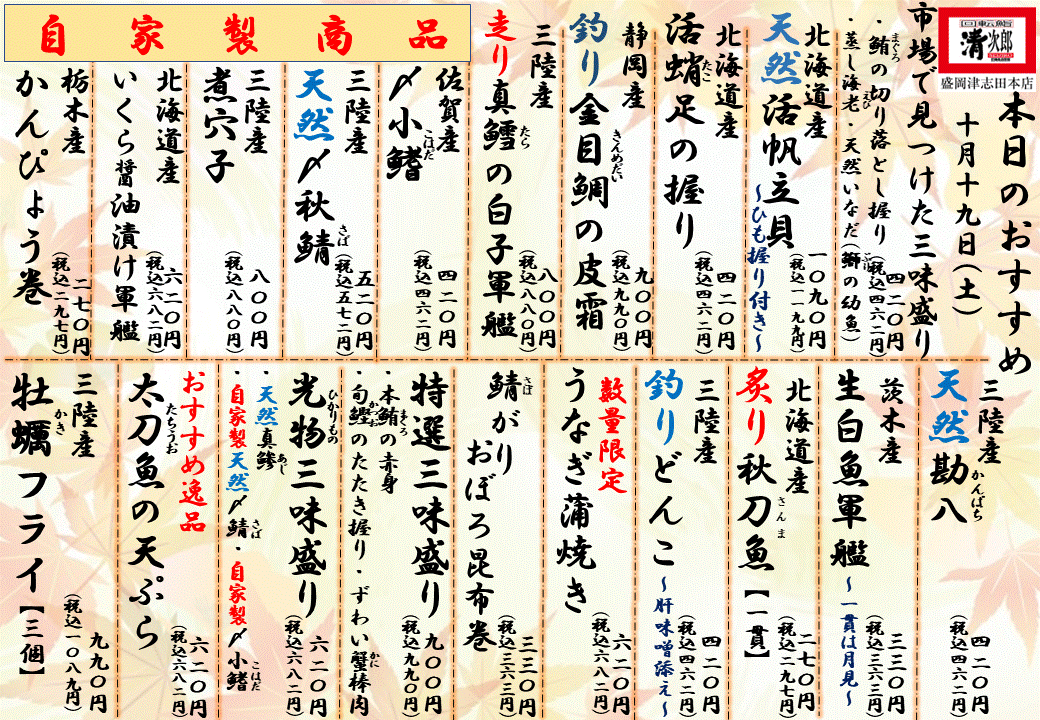 回転鮨
清次郎
盛岡津志田本店
本日のおすすめ
十月十九日(土)
市場で見つけた三味盛り
・鮪の切り落とし握り
まぐろ
・蒸し海老・天然いなだ(鰤の幼魚)
えび
四二〇円
(税込四六二円)
北海道産
天然活帆立貝
~ひも握り付き~
一〇九〇円
(税込一一九九円)
北海道産
活蛸足の握り
たこ
四二〇円
(税込四六二円)
静岡産
釣り金目鯛の皮霜
きんめだい
九〇〇円
(税込九九〇円)
三陸産
走り真鱈の白子軍艦
たら
八〇〇円
(税込八八〇円)
自家製商品
佐賀産
〆小鰭
こはだ
四二〇円
(税込四六二円)
三陸産
天然〆秋鯖
さば
五二〇円
(税込五七二円)
三陸産
煮穴子
八〇〇円
(税込八八〇円)
北海道産
いくら醤油漬け軍艦
六二〇円
(税込六八二円)
栃木産
かんぴょう巻
二七〇円
(税込二九七円)
三陸産
天然勘八
かんぱち
四二〇円
(税込四六二円)
茨木産
生白魚軍艦
~一貫は月見~
三三〇円
(税込三六三円)
北海道産
炙り秋刀魚【一貫】
さんま
二七〇円
(税込二九七円)
三陸産
釣りどんこ
~肝味噌添え~
四二〇円
(税込四六二円)
数量限定
うなぎ蒲焼き
六二〇円
(税込六八二円)
鯖がり
さば
おぼろ昆布巻
三三〇円
(税込三六三円)
特選三味盛り
・本鮪の赤身
まぐろ
・旬鰹のたたき握り・ずわい蟹棒肉
かつお
かに
九〇〇円
(税込九九〇円)
光物三味盛り
ひかりもの
・天然真鯵
あじ
・自家製天然〆鯖・自家製〆小鰭
さば
こはだ
六二〇円
(税込六八二円)
おすすめ逸品
太刀魚の天ぷら
たちうお
六二〇円
(税込六八二円)
三陸産
牡蠣フライ【三個】
かき
九九〇円
(税込一〇八九円)